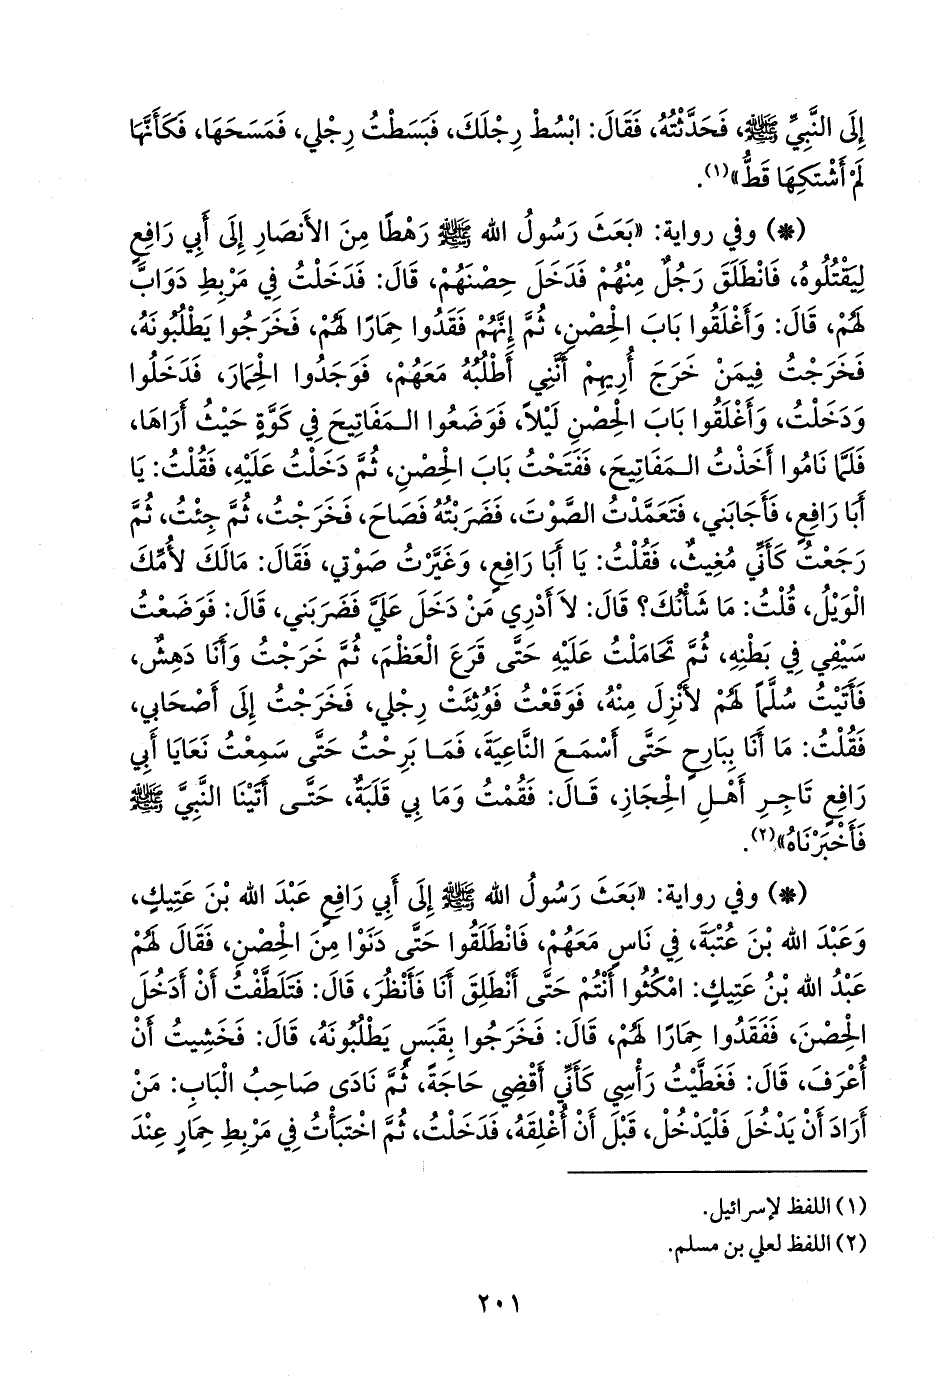 إِلَى النَّبِيِّ ﷺ، فَحَدَّثْتُهُ، فَقَالَ: ابْسُطْ رِجْلَكَ، فَبَسَطْتُ رِجْلِي، فَمَسَحَهَا، فَكَأَنَّهَا
لَمْ أَشْتَكِهَا قَطُّ»(١).
(*) وفي رواية: «بَعَثَ رَسُولُ الله ﷺ رَهْطًا مِنَ الأَنْصَارِ إِلَى أَبِي رَافِعٍ
لِيَقْتُلُوهُ، فَانْطَلَقَ رَجُلٌ مِنْهُمْ فَدَخَلَ حِصْنَهُمْ، قَالَ: فَدَخَلْتُ فِي مَرْبِطِ دَوَابَّ
لَهُمْ، قَالَ: وَأَغْلَقُوا بَابَ الْحِصْنِ، ثُمَّ إِنَّهُمْ فَقَدُوا حِمَارًا لَهُمْ، فَخَرَجُوا يَطْلُبُونَهُ،
فَخَرَجْتُ فِيمَنْ خَرَجَ أُرِيهِمْ أَنَّنِي أَطْلُبُهُ مَعَهُمْ، فَوَجَدُوا الْحِمَارَ، فَدَخَلُوا
وَدَخَلْتُ، وَأَغْلَقُوا بَابَ الْحِصْنِ لَيْلاً، فَوَضَعُوا الـمَفَاتِيحَ فِي كَوَّةٍ حَيْثُ أَرَاهَا،
فَلَمَّا نَامُوا أَخَذْتُ الـمَفَاتِيحَ، فَفَتَحْتُ بَابَ الْحِصْنِ، ثُمَّ دَخَلْتُ عَلَيْهِ، فَقُلْتُ: يَا
أَبَا رَافِعٍ، فَأَجَابَنِي، فَتَعَمَّدْتُ الصَّوْتَ، فَضَرَبْتُهُ فَصَاحَ، فَخَرَجْتُ، ثُمَّ جِئْتُ، ثُمَّ
رَجَعْتُ كَأَنِّي مُغِيثٌ، فَقُلْتُ: يَا أَبَا رَافِعٍ، وَغَيَّرْتُ صَوْتِي، فَقَالَ: مَالَكَ لأُمِّكَ
الْوَيْلُ، قُلْتُ: مَا شَأْنُكَ؟ قَالَ: لاَ أَدْرِي مَنْ دَخَلَ عَلَيَّ فَضَرَبَنِي، قَالَ: فَوَضَعْتُ
سَيْفِي فِي بَطْنِهِ، ثُمَّ تَحَامَلْتُ عَلَيْهِ حَتَّى قَرَعَ الْعَظْمَ، ثُمَّ خَرَجْتُ وَأَنَا دَهِشٌ،
فَأَتَيْتُ سُلَّمًا لَهُمْ لأَنْزِلَ مِنْهُ، فَوَقَعْتُ فَوُثِئَتْ رِجْلِي، فَخَرَجْتُ إِلَى أَصْحَابِي،
فَقُلْتُ: مَا أَنَا بِبَارِحٍ حَتَّى أَسْمَعَ النَّاعِيَةَ، فَمَا بَرِحْتُ حَتَّى سَمِعْتُ نَعَايَا أَبِي
رَافِعٍ تَاجِرِ أَهْلِ الْحِجَازِ، قَالَ: فَقُمْتُ وَمَا بِي قَلَبَةٌ، حَتَّى أَتَيْنَا النَّبِيَّ ﷺ
فَأَخْبَرْنَاهُ»(٢).
(*) وفي رواية: «بَعَثَ رَسُولُ الله ﷺ إِلَى أَبِي رَافِعٍ عَبْدَ الله بْنَ عَتِيكٍ،
وَعَبْدَ الله بْنَ عُتْبَةَ، فِي نَاسٍ مَعَهُمْ، فَانْطَلَقُوا حَتَّى دَنَوْا مِنَ الْحِصْنِ، فَقَالَ لَهُمْ
عَبْدُ الله بْنُ عَتِيكٍ: امْكُثُوا أَنْتُمْ حَتَّى أَنْطَلِقَ أَنَا فَأَنْظُرَ، قَالَ: فَتَلَطَّفْتُ أَنْ أَدْخُلَ
الْحِصْنَ، فَفَقَدُوا حِمَارًا لَهُمْ، قَالَ: فَخَرَجُوا بِقَبَسٍ يَطْلُبُونَهُ، قَالَ: فَخَشِيتُ أَنْ
أُعْرَفَ، قَالَ: فَغَطَّيْتُ رَأْسِي كَأَنِّي أَقْضِي حَاجَةً، ثُمَّ نَادَى صَاحِبُ الْبَابِ: مَنْ
أَرَادَ أَنْ يَدْخُلَ فَلْيَدْخُلْ، قَبْلَ أَنْ أُغْلِقَهُ، فَدَخَلْتُ، ثُمَّ اخْتَبَأْتُ فِي مَرْبِطِ حِمَارٍ عِنْدَ
(١) اللفظ لإسرائيل.
(٢) اللفظ لعلي بن مسلم.
٢٠١